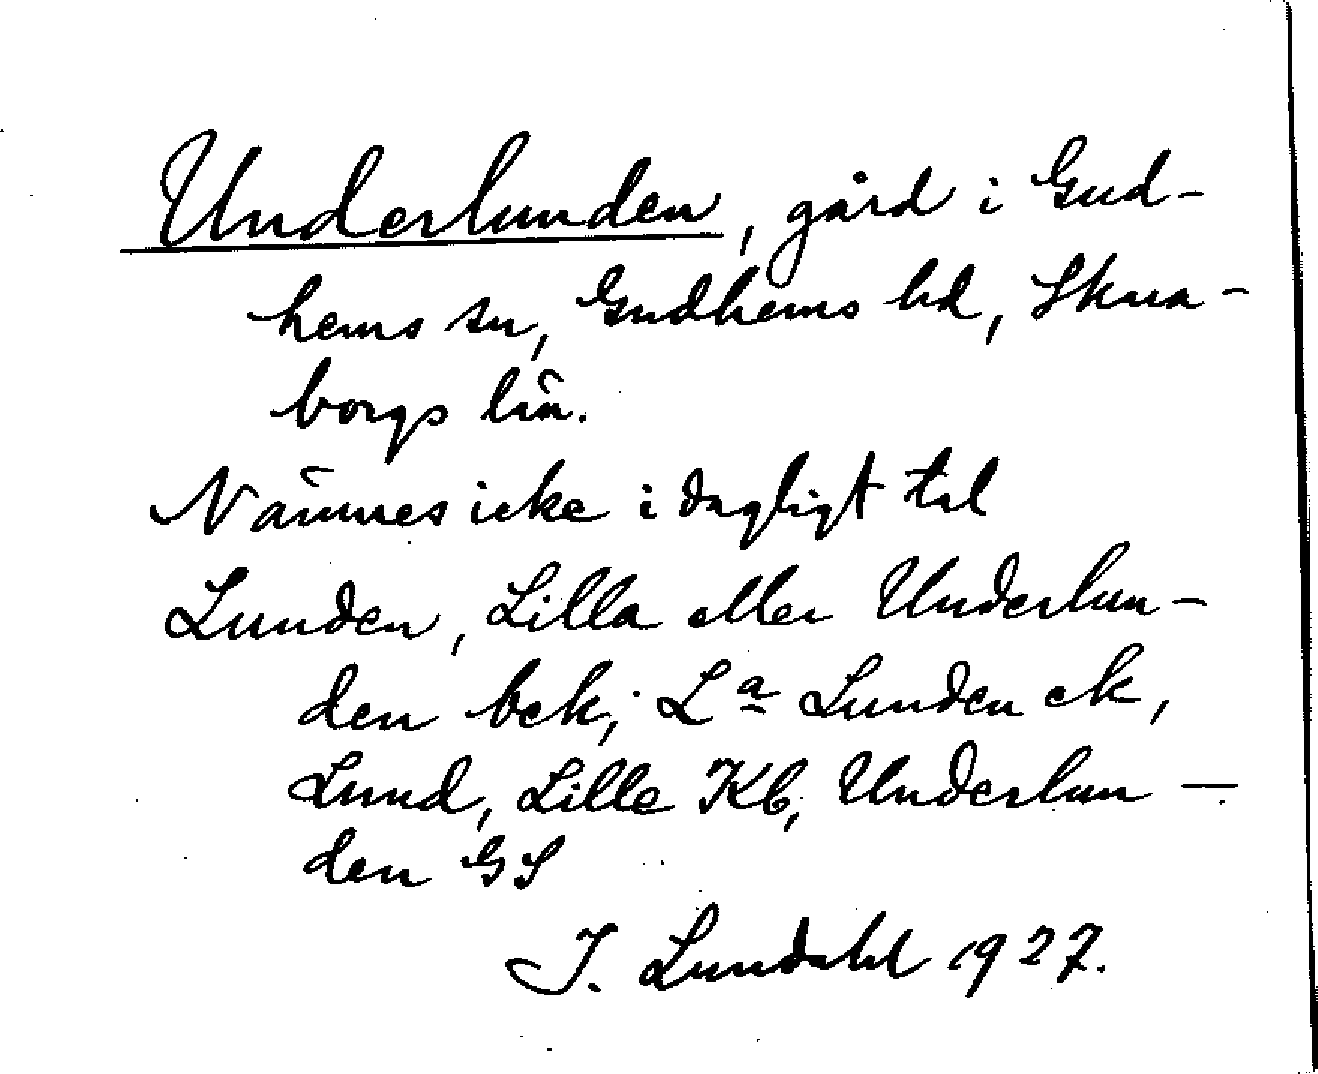 Underlunden, gård i Gud-
hems sn, Gudhems hd, Skara-
borgs län.
Nämnes icke i dagligt tal
Lunden, Lilla eller Underlun-
den bek; La Lunden ek,
Lund, Lille Kb; Underlun-
den GS
I. Lundahl 1927.